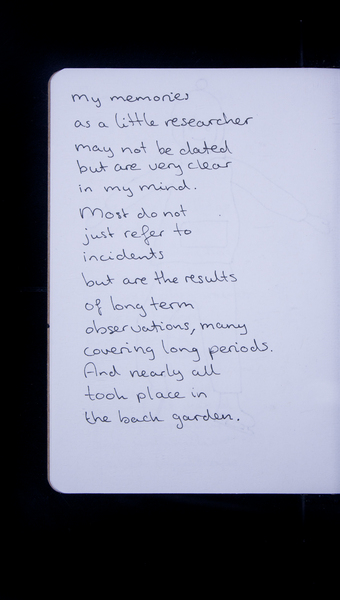 my memories
as a little researcher
may not be dated
but are very clear
in my mind.
Most do not
just refer to
incidents
but are the results
of long term
observations, many
covering long periods.
And nearly all
took place in
the back garden.